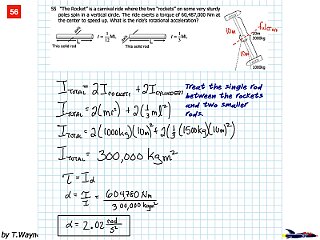 56
55 "The Rocket" is a carnival ride where the two "rockets" on some very sturdy
poles spin in a vertical circle. The ride exerts a torque of 60,487,000 Nm at
the center to speed up. What is the ride's rotational acceleration?
Thin solid rod
Thin solid rod
10m
10m
1000kg
Treat the single rod
between the rockets
and two smaller
rods.
I_TOTAL = 2(mr²) + 2(⅓ml²)
I_TOTAL = 2(1000kg)(10m)² + 2(⅓(1500kg)(10m)²)
I_TOTAL = 300,000 kgm²
τ = Iα
α = τ/I = 604,750 Nm / 300,000 kgm²
α = 2.02 rad/s²
by T.Wayne